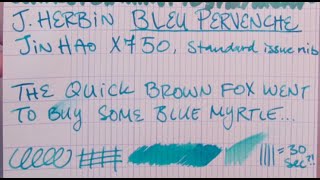 J. HERBIN BLEU PERVENCHE
JINHAO X750, standard issue nib
THE QUICK BROWN FOX WENT
TO BUY SOME BLUE MYRTLE...
= 30
SEC?!